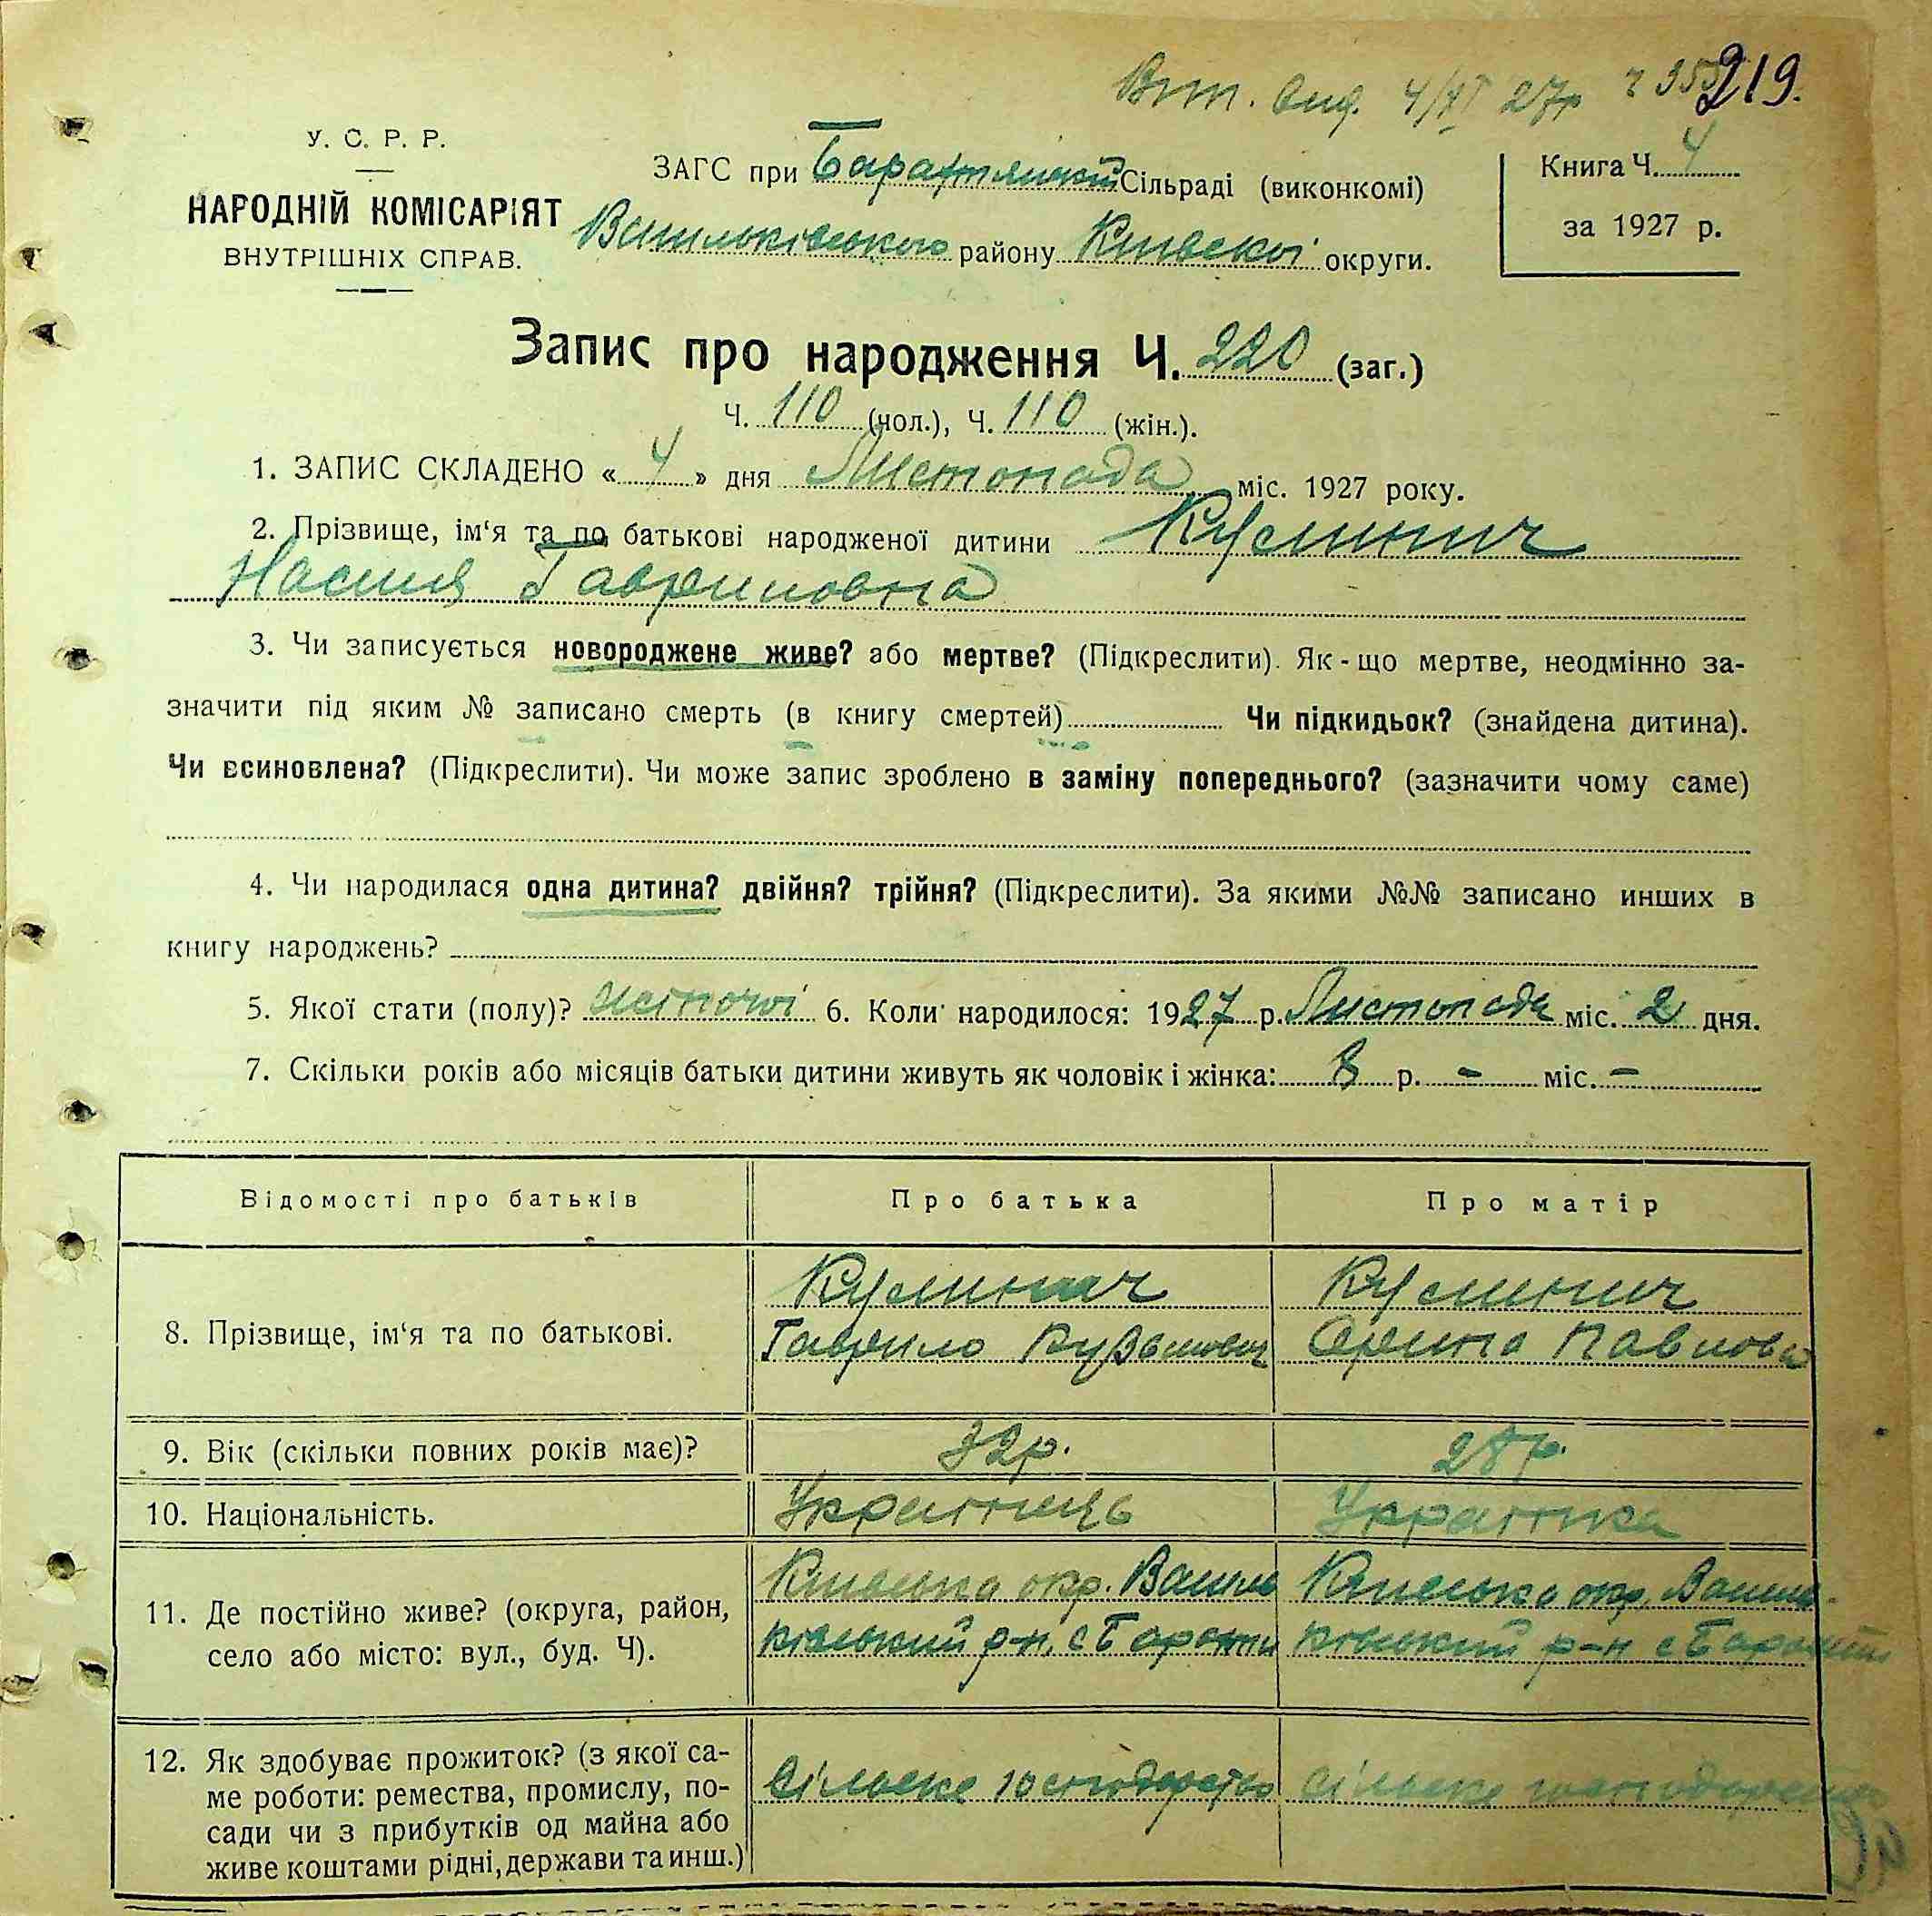 Вит. вид. 4/XI 27р ч 355 219.
У. С. Р. Р.
НАРОДНІЙ КОМІСАРІЯТ
ВНУТРІШНІХ СПРАВ.
ЗАГС при Барахтянській Сільраді (виконкомі)
Васильківського району Київскої округи.
Книга Ч. 4
за 1927 р.
Запис про народження Ч. 220 (заг.)
Ч. 110 (чол.), Ч. 110 (жін.).
1. ЗАПИС СКЛАДЕНО « 4 » дня Листопада міс. 1927 року.
2. Прізвище, ім‘я та по батькові народженої дитини
Гавриловна
3. Чи записується новороджене живе? або мертве? (Підкреслити). Як-що мертве, неодмінно за-
значити під яким № записано смерть (в книгу смертей) Чи підкидьок? (знайдена дитина).
Чи всиновлена? (Підкреслити). Чи може запис зроблено в заміну попереднього? (зазначити чому саме)
4. Чи народилася одна дитина? двійня? трійня? (Підкреслити). За якими №№ записано инших в
книгу народжень?
5. Якої стати (полу)? жіночої 6. Коли народилося: 1927 р. Листопада міс. 2 дня.
7. Скільки років або місяців батьки дитини живуть як чоловік і жінка: 8 р. - міс. -
Відомості про батьків Про батька Про матір
8. Прізвище, ім‘я та по батькові.
Гаврило
Павлова
9. Вік (скільки повних років має)? 32р. 28р.
10. Національність. Українець Українка
11. Де постійно живе? (округа, район,
село або місто: вул., буд. Ч).
Київська окр. Василь
ківський р-н, с Барахти
Київська окр. Василь-
ківський р-н с Барахти
12. Як здобуває прожиток? (з якої са-
ме роботи: ремества, промислу, по-
сади чи з прибутків од майна або
живе коштами рідні, держави та инш.)
Сільске господарство
Сільске господарство